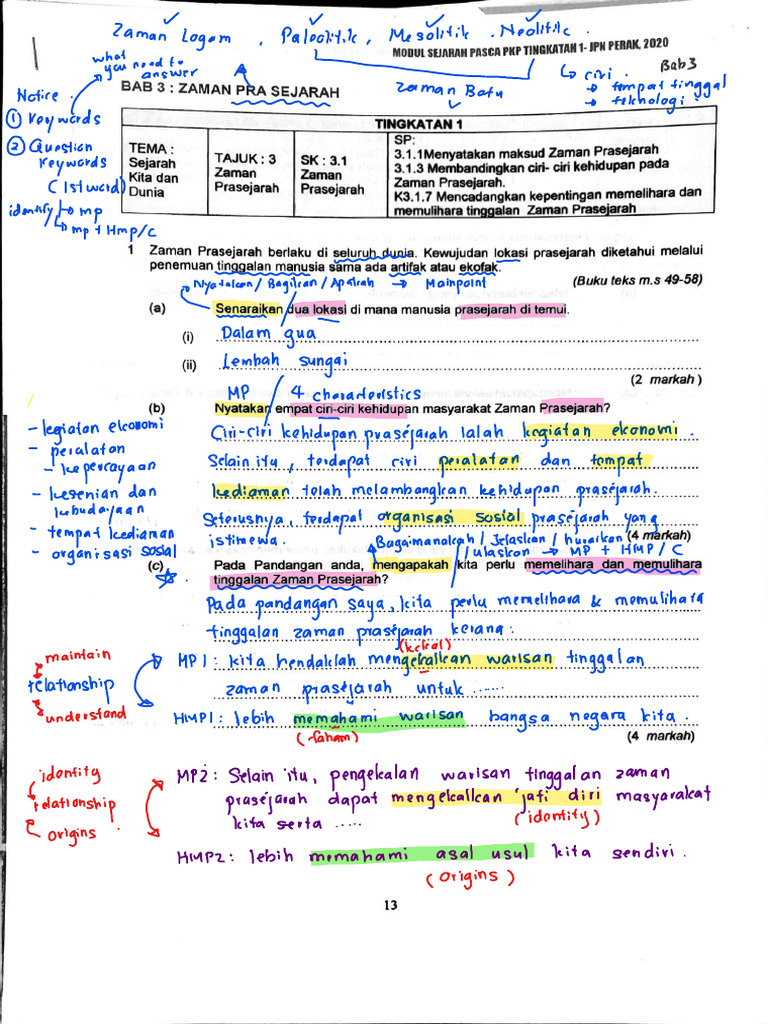 Zaman Logam , Paleolitik, Mesolitik . Neolitik.
MODUL SEJARAH PASCA PKP TINGKATAN 1- JPN PERAK, 2020
Bab 3
what you need to answer
ciri .
→ tempat tinggal
→ teknologi
BAB 3 : ZAMAN PRA SEJARAH
Zaman Batu
Notice :
① keywords
② Question keywords
(1st word)
identify → mp
→ mp + Hmp/c
TINGKATAN 1
TEMA :
Sejarah
Kita dan
Dunia
TAJUK : 3
Zaman
Prasejarah
SK : 3.1
Zaman
Prasejarah
SP:
3.1.1Menyatakan maksud Zaman Prasejarah
3.1.3 Membandingkan ciri- ciri kehidupan pada
Zaman Prasejarah.
K3.1.7 Mencadangkan kepentingan memelihara dan
memulihara tinggalan Zaman Prasejarah
1 Zaman Prasejarah berlaku di seluruh dunia. Kewujudan lokasi prasejarah diketahui melalui
penemuan tinggalan manusia sama ada artifak atau ekofak.
(Buku teks m.s 49-58)
Nyatakan / Bagikan / Apakah → Mainpoint
(a) Senaraikan dua lokasi di mana manusia prasejarah di temui.
(i) Dalam gua
(ii) Lembah sungai
(2 markah )
MP / 4 characteristics
(b) Nyatakan empat ciri-ciri kehidupan masyarakat Zaman Prasejarah?
- kegiatan ekonomi
- peralatan
- kepercayaan
- kesenian dan kebudayaan
- tempat kediaman
- organisasi sosial
Ciri-ciri kehidupan prasejarah ialah kegiatan ekonomi .
Selain itu, terdapat ciri peralatan dan tempat
kediaman telah melambangkan kehidupan prasejarah.
Seterusnya, terdapat organisasi sosial prasejarah yang
istimewa.
(4 markah)
Bagaimanakah / Jelaskan / huraikan
/ulaskan → MP + HMP / C
(c) Pada Pandangan anda, mengapakah kita perlu memelihara dan memulihara
tinggalan Zaman Prasejarah?
Pada pandangan saya, kita perlu memelihara & memulihara
tinggalan zaman prasejarah kerana :
(kekal)
MP1 : kita hendaklah mengekalkan warisan tinggalan
zaman prasejarah untuk .......
HMP1 : lebih memahami warisan bangsa negara kita .
(faham)
(4 markah)
maintain
relationship
understand
MP2 : Selain itu, pengekalan warisan tinggalan zaman
prasejarah dapat mengekalkan jati diri masyarakat
kita serta .....
(identity)
HMP2 : lebih memahami asal usul kita sendiri .
(origins)
identity
relationship
origins
13